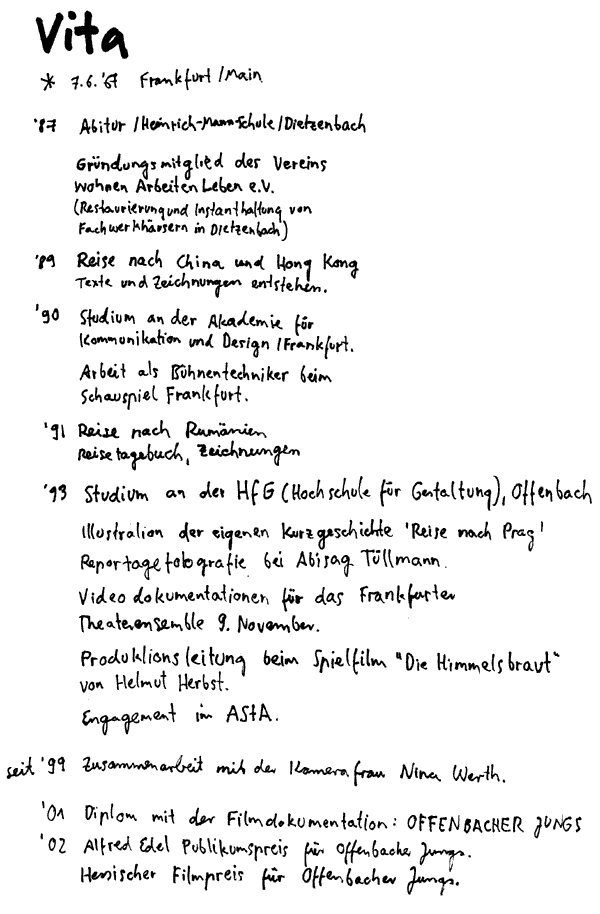 Vita
* 7.6.'67 Frankfurt/Main
'87 Abitur/Heinrich-Mann-Schule/Dietzenbach
Gründungsmitglied des Vereins
Wohnen Arbeiten Leben e.V.
(Restaurierung und Instanthaltung von
Fachwerkhäusern in Dietzenbach)
'89 Reise nach China und Hong Kong
Texte und Zeichnungen entstehen.
'90 Studium an der Akademie für
Kommunikation und Design/Frankfurt.
Arbeit als Bühnentechniker beim
Schauspiel Frankfurt.
'91 Reise nach Rumänien
Reisetagebuch, Zeichnungen
'93 Studium an der HfG (Hochschule für Gestaltung), Offenbach
Illustration der eigenen Kurzgeschichte 'Reise nach Prag'
Reportagefotografie bei Abisag Tüllmann.
Videodokumentationen für das Frankfurter
Theaterensemble 9. November.
Produktionsleitung beim Spielfilm "Die Himmelsbraut"
von Helmut Herbst.
Engagement im AStA.
seit '99 Zusammenarbeit mit der Kamerafrau Nina Werth.
'01 Diplom mit der Filmdokumentation: OFFENBACHER JUNGS
'02 Alfred Edel Publikumspreis für Offenbacher Jungs.
Hessischer Filmpreis für Offenbacher Jungs.